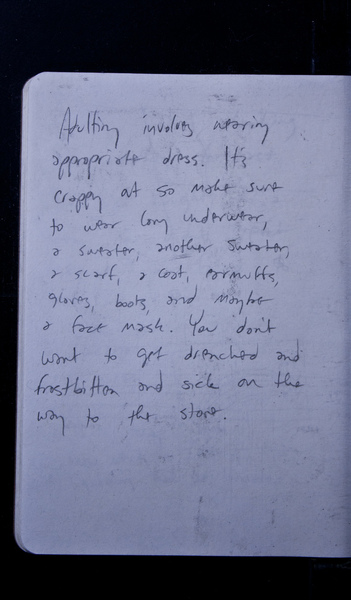 Adulting involves wearing
appropriate dress. It's
crappy out so make sure
to wear long underwear,
a sweater, another sweater,
a scarf, a coat, earmuffs,
gloves, boots, and maybe
a face mask. You don't
want to get drenched and
frostbitten and sick on the
way to the store.